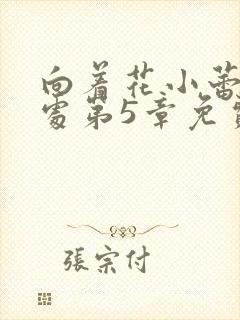 向着花小蕾
处第5章免
張宗付